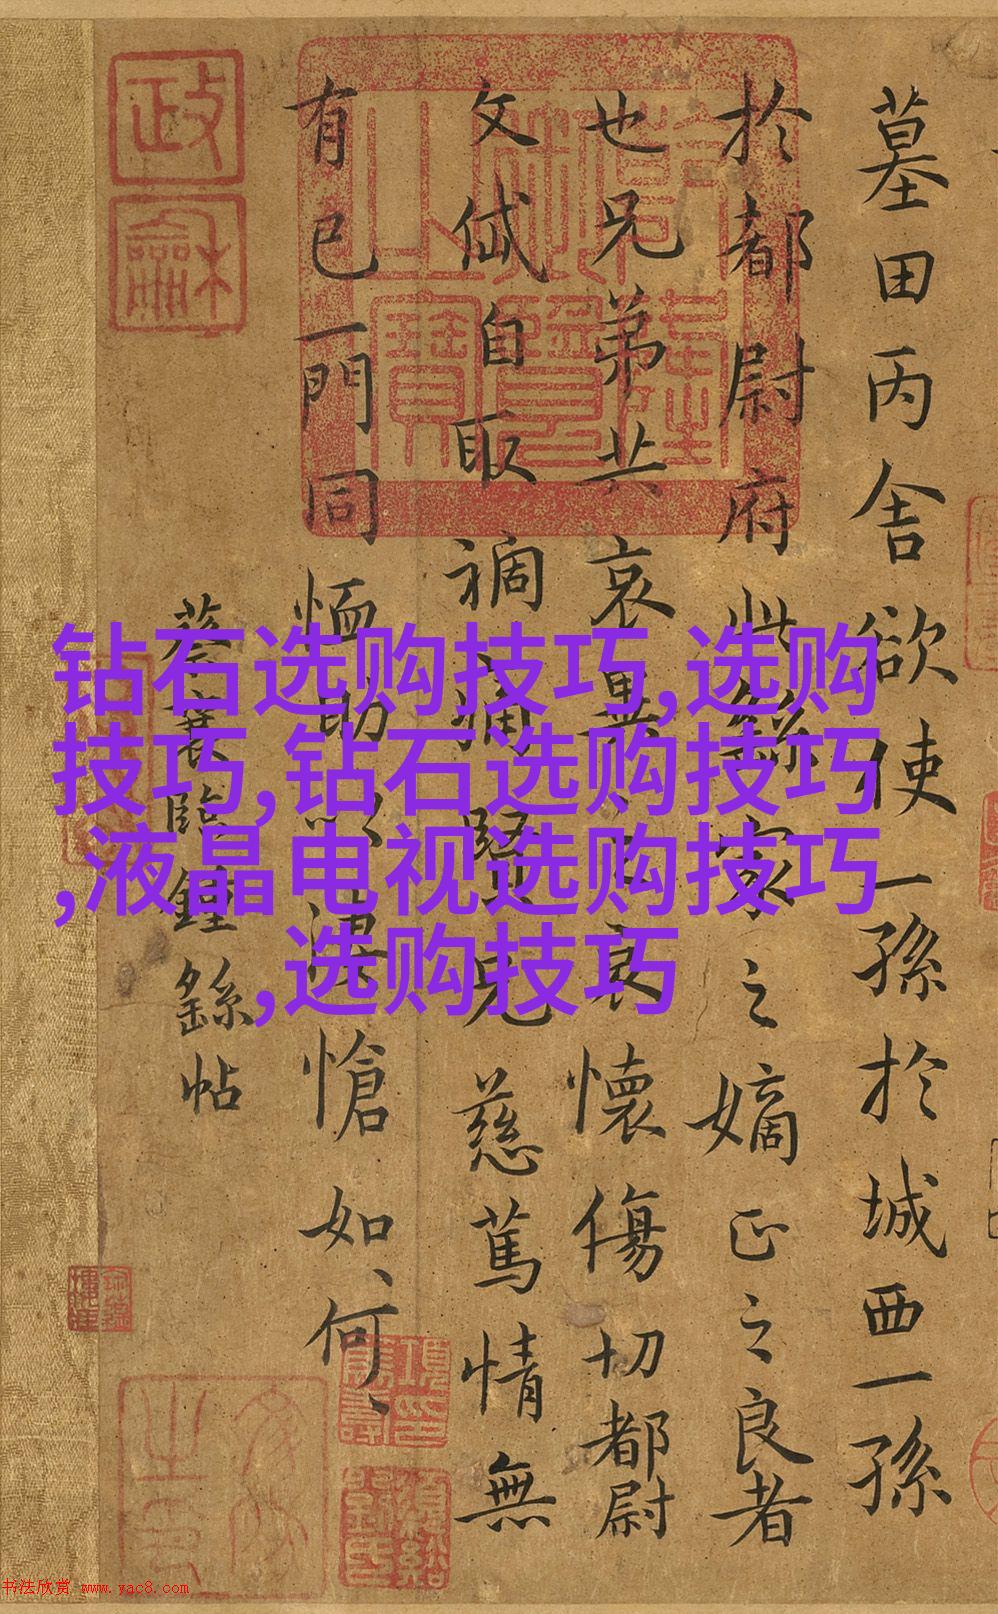 墓田丙舍欲使一孫於城西一孫
於都尉府此繇家之嫡正之良者
也兄弟共哀異之哀懷傷切都尉
文自取禍痛賢兄慈篤情無
有已一門同恤助以悽愴如何
蔡襄臨鍾繇帖
政龢
钻石选购技巧,选购
技巧,钻石选购技巧
,液晶电视选购技巧
,选购技巧
书法欣赏 www.yac8.com